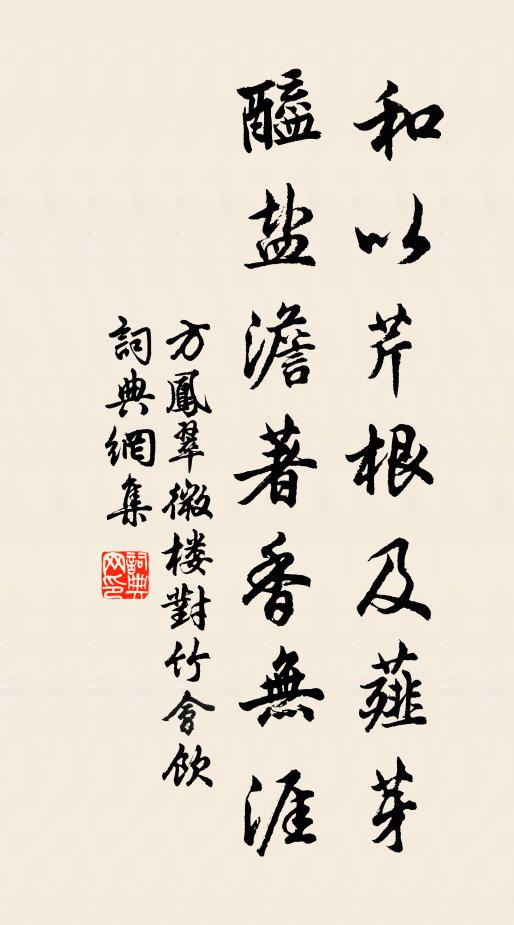 和以芹根及薤芽
醯盐澹著香無涯
方鳳翠微楼對竹會飲
詞典網集
詞典
网印